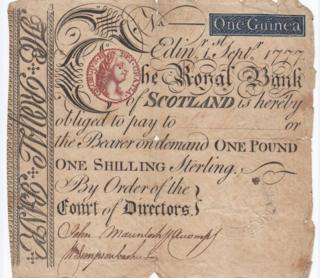 No
One Guinea
Edinr. 1st Septr. 1777
The Royal Bank
of SCOTLAND is hereby
obliged to pay to or
the Bearer on demand ONE POUND
ONE SHILLING Sterling.
By Order of the
Court of Directors.
John